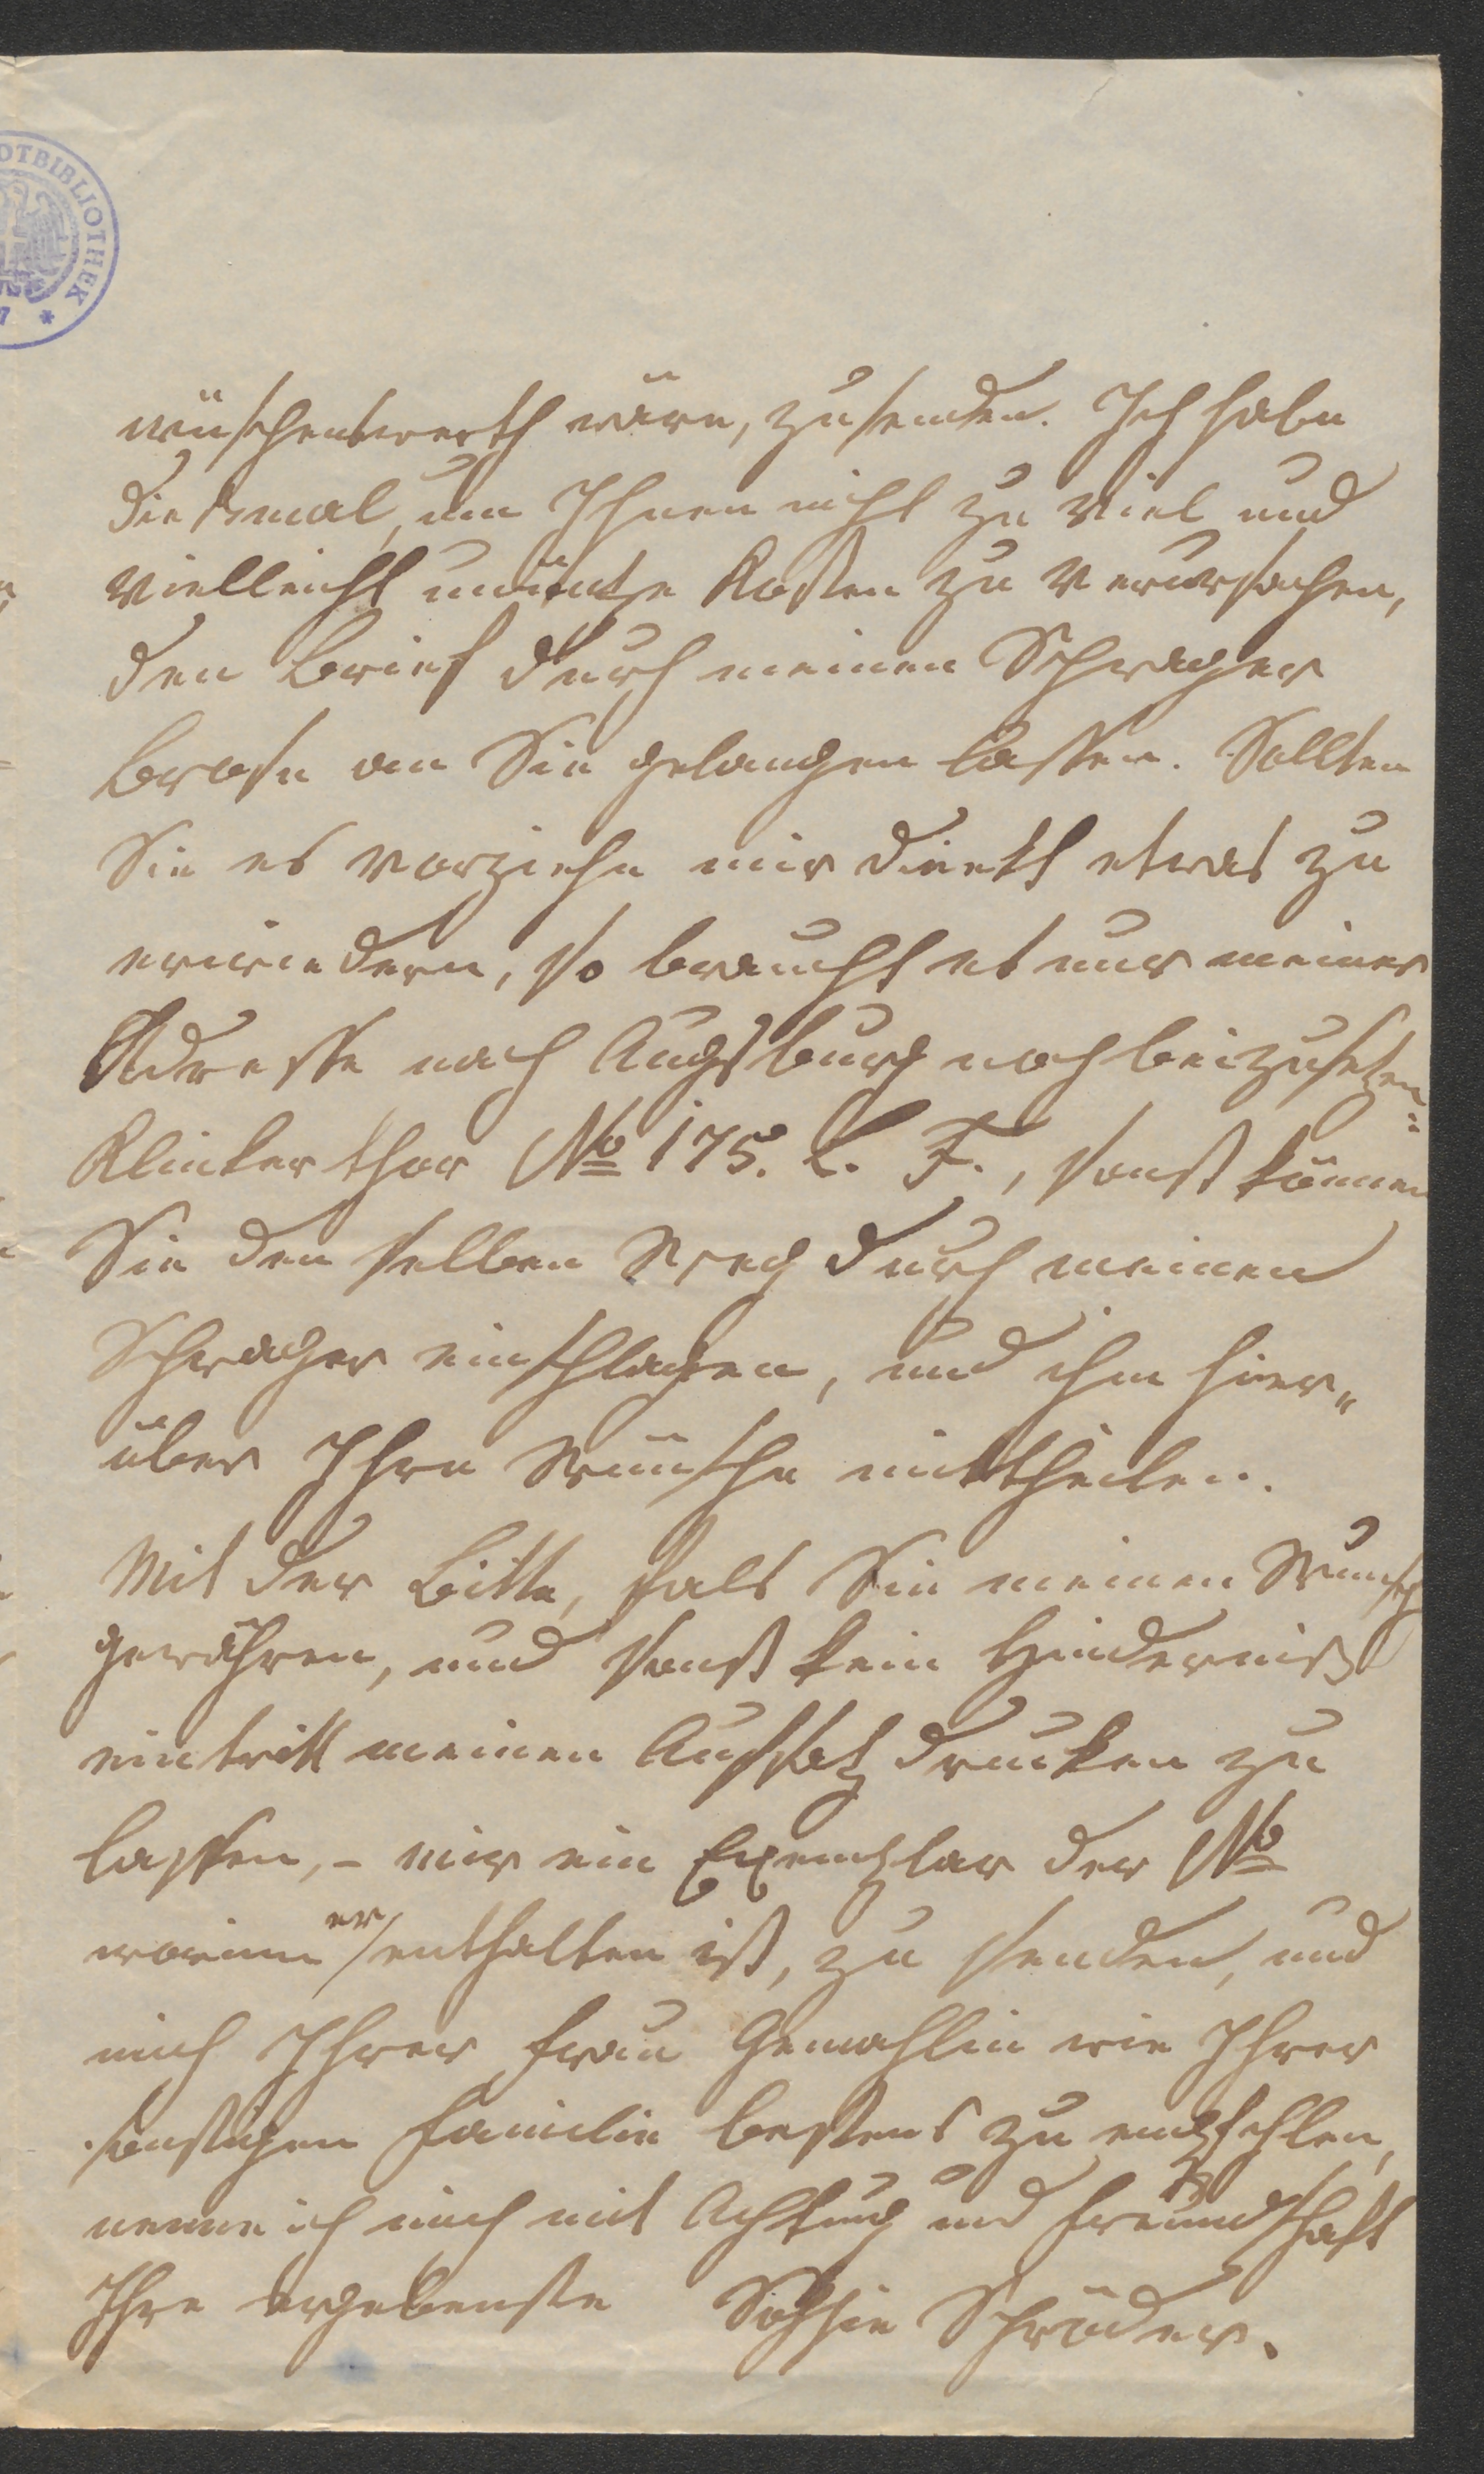 OTBIBLIOTHEK
wünschenswerth wäre, zusenden. Ich habe
diesmal, um Ihnen nicht zu viel und
vielleicht unnütze Kosten zu verursachen,
den Brief durch meinen Schwager
Brose an Sie gelangen lassen. Sollten
Sie es vorziehn mir direkt etwas zu
erwiedern, so braucht es nur meiner
Adresse nach Augsburg noch beizusetzen:
Klinkerthor No 175. L. F., sonst können
Sie denselben Weg durch meinen
Schwager einschlagen, und ihm hier„
über Ihre Wünsche mittheilen.
Mit der Bitte, fals Sie meinen Wunsch
gewähren, und sonst kein Hinderniß
eintritt meinen Aufsatz drucken zu
lassen, – mir ein Exemplar der No
worinn er enthalten ist, zu senden, und
mich Ihrer Frau Gemahlin wie Ihrer
sonstigen Familie bestens zu empfehlen,
nenne ich mich mit Achtung und Freundschaft
Ihre ergebenste Sophie Schröder.